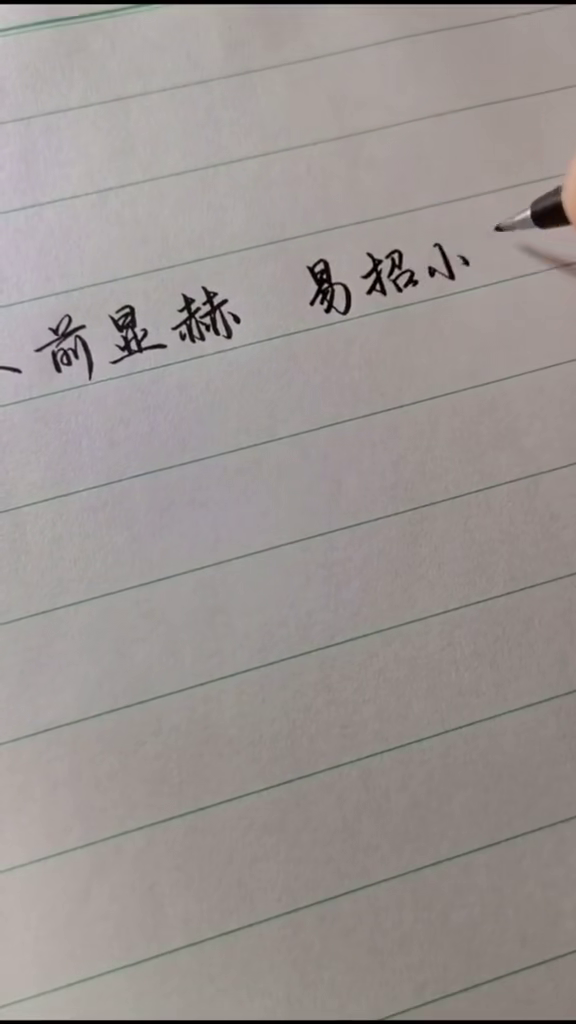 前显赫 易招小